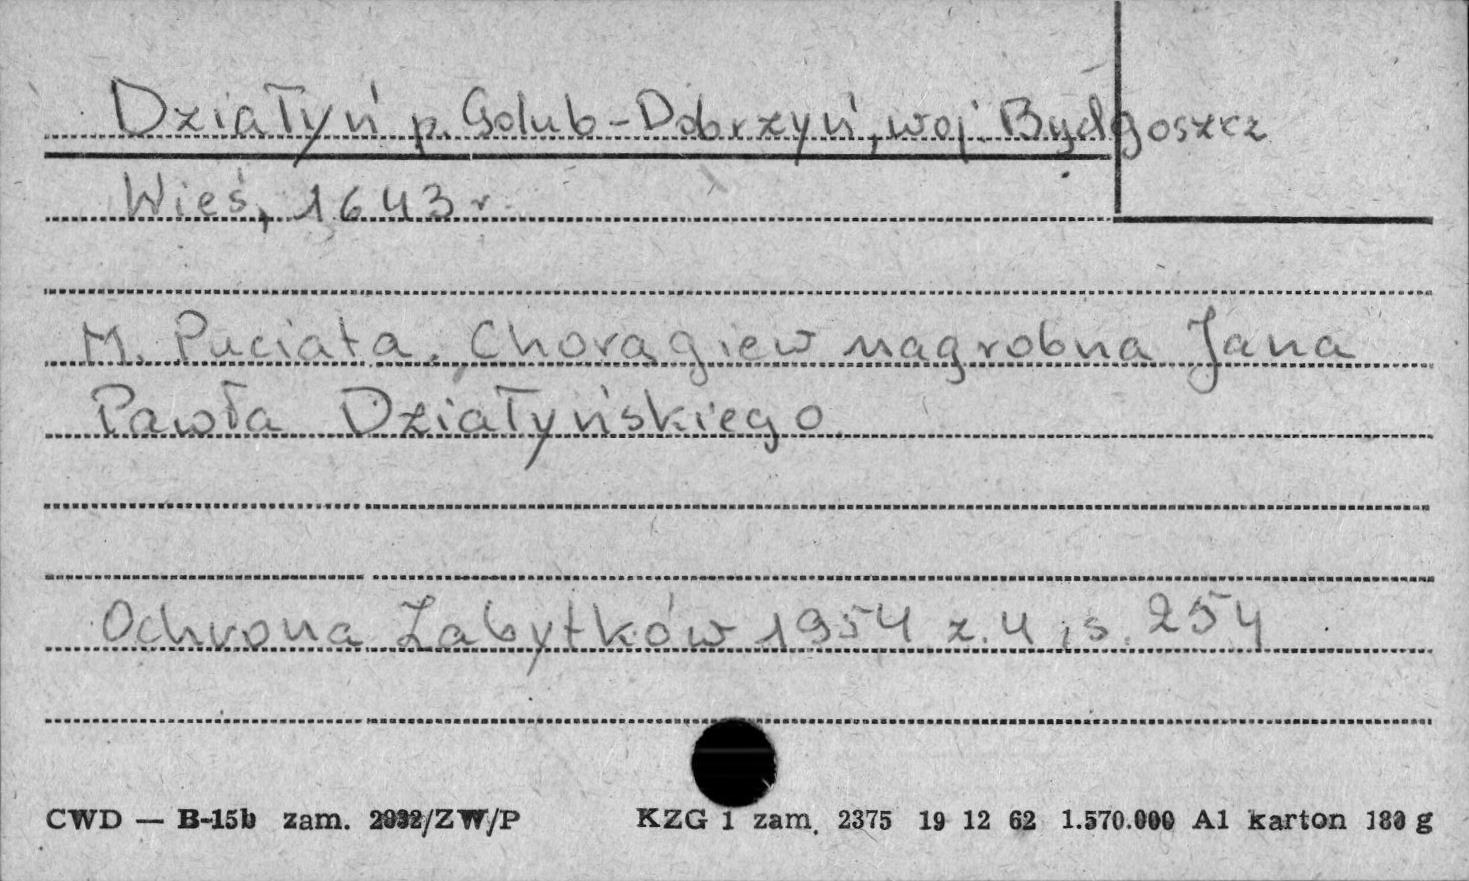 Działyń p. Golub-Dobrzyń, woj. Bydgoszcz
Wieś, 1643 r.
M. Puciata. Chorągiew nagrobna Jana
Pawła Działyńskiego.
Ochrona Zabytków 1954 z. 4 s. 254
CWD — B-15b zam. 2932/ZW/P KZG 1 zam. 2375 19 12 62 1.570.000 A1 karton 180 g